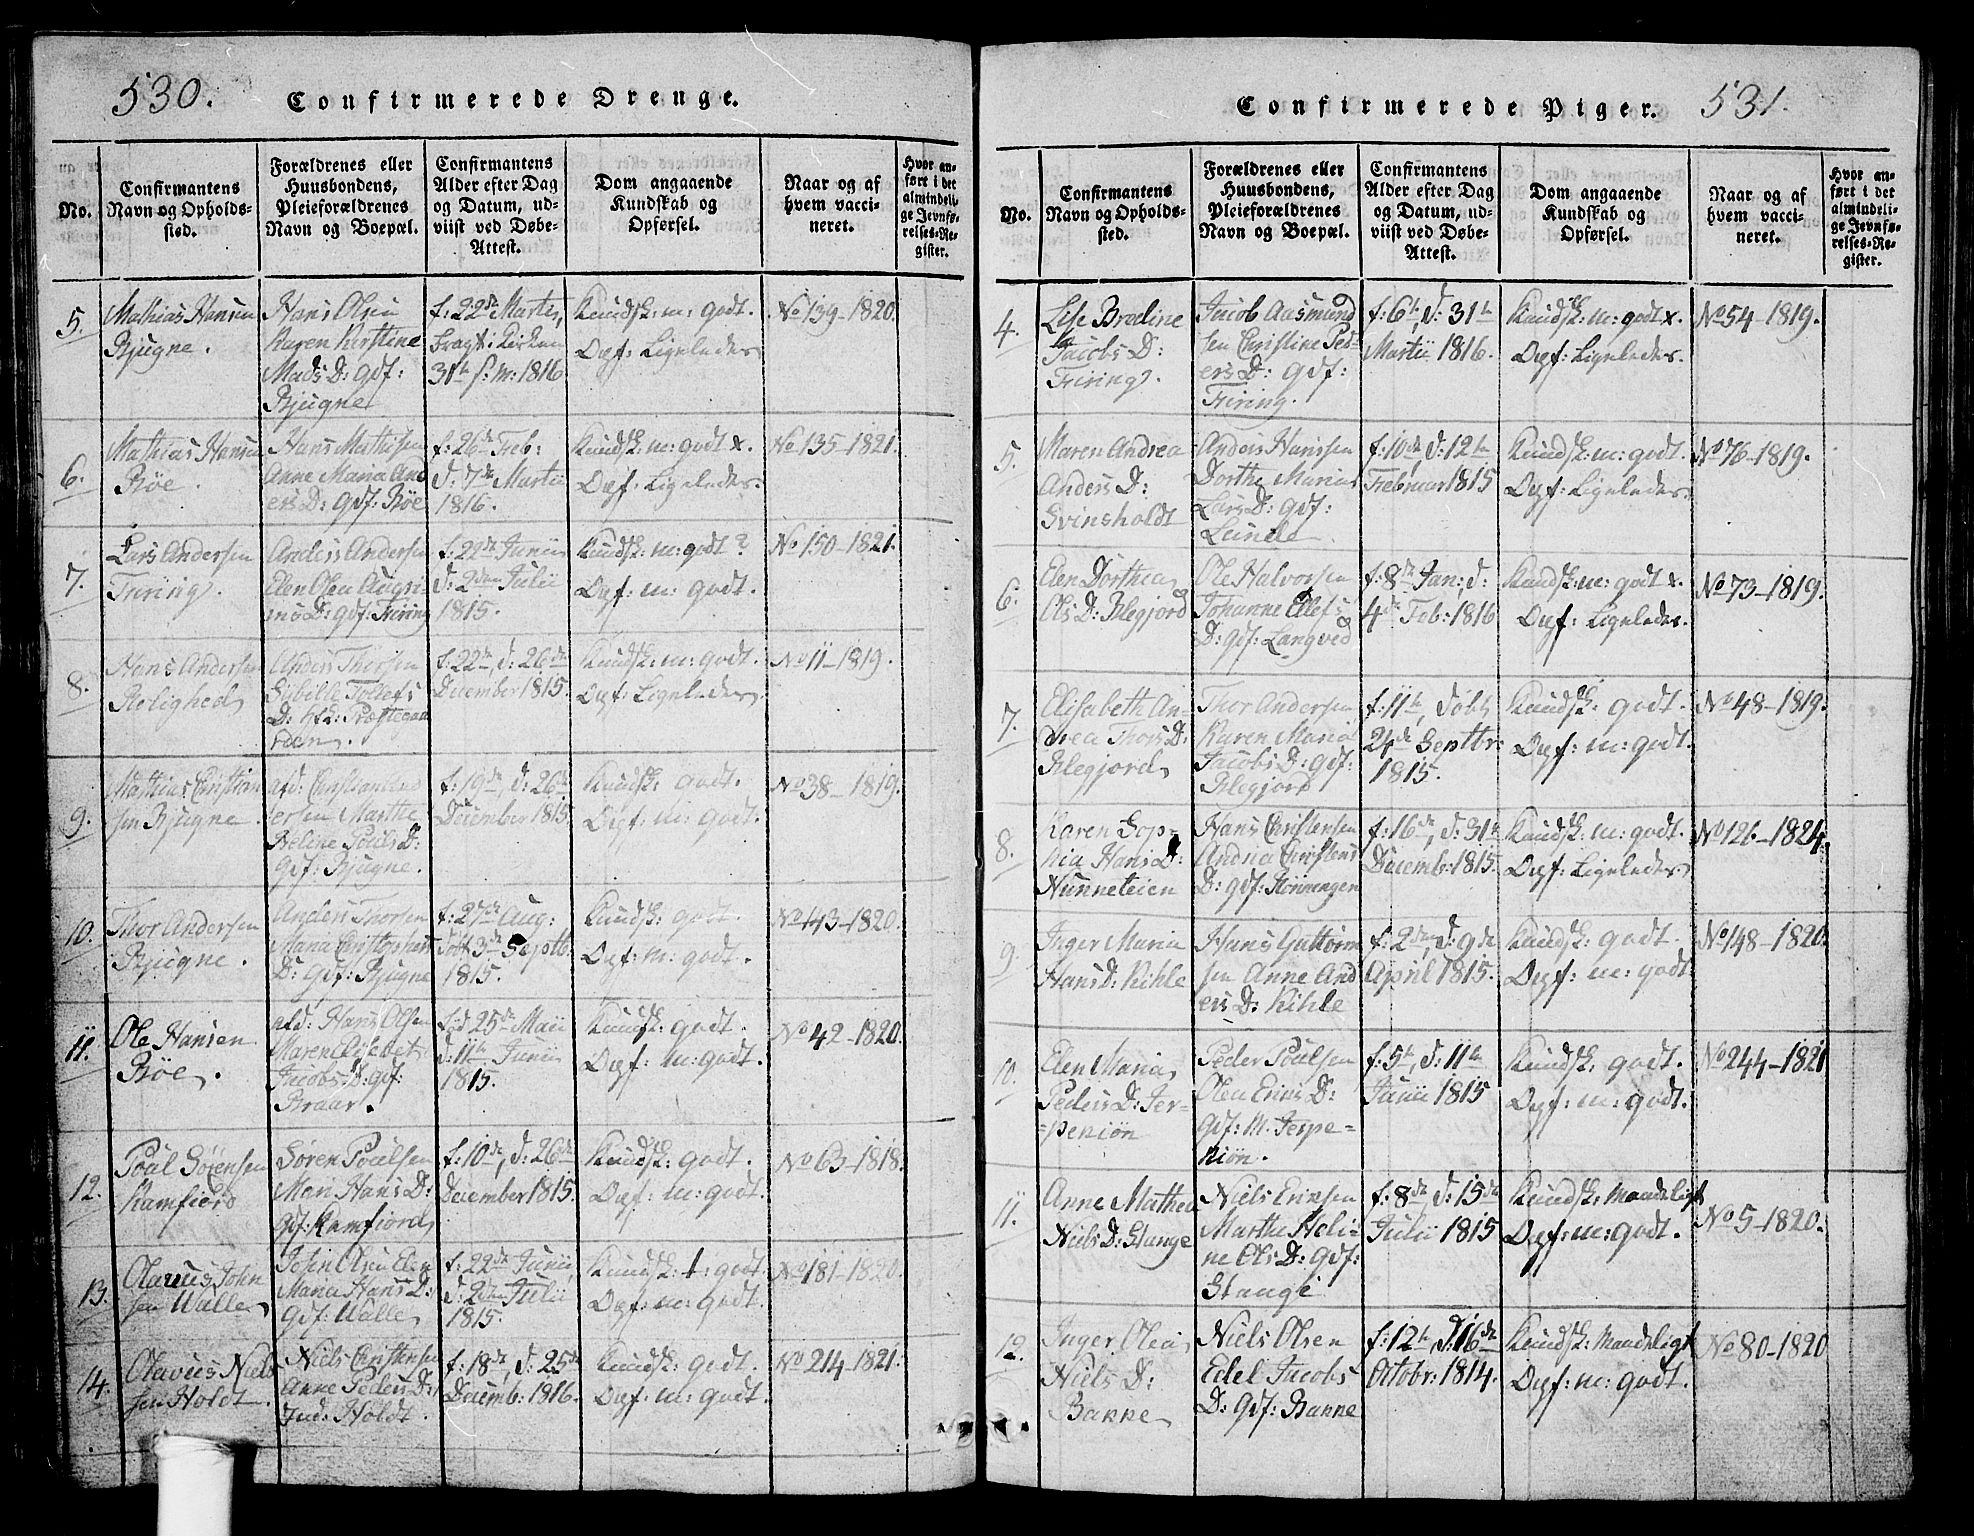 530.
Confirmerede Drenge.
No.
Confirmantens
Navn og Opholds-
sted.
Forældrenes eller
Huusbondens,
Pleieforældrenes
Navn og Boepæl.
Confirmantens
Alder efter Dag
og Datum, ud-
viist ved Døbe-
Attest.
Dom angaaende
Kundskab og
Opførsel.
Naar og af
hvem vacci-
neret.
Hvor an-
ført i det
almindeli-
ge Jevnfø-
relses-Re-
gister.
5.
Mathias Hansen
Bjugne.
Hans Olsen
Karen Kirstine
Mads D: gdf:
Bjugne
f: 22de Martii,
31te s: m: 1816
Kundsk: m: godt.
Opf: Ligeledes
No 139-1820.
6.
Mathias Hansen
Röe.
Hans Mathisen
Anne Maria And
ers D: gdf: Röe
f: 26de Feb:
d: 7de Martii
1816.
Kundsk: m: godt x.
Opf: Ligeledes.
No 135-1821.
7.
Lars Andersen
Friring.
Anders Andersen
Elen Olea Augri-
ms D: gdf: Friring
f: 22de Junii
d: 2den Julii
1815.
Kundsk: m: godt ?
Opf: m: godt.
No 150-1821.
8.
Hans Andersen
Roligheds
Anders Thorsen
Sibille Tollefs
D: Præstegaa
rden.
f: 22de, d: 26de
December 1815.
Kundsk: m: godt.
Opf: Ligeledes
No 11-1819.
9.
Mathias Christian
sen Bjugne.
afd: Christian And
ersen Marthe
Heline Pouls D:
gdf: Bjugne.
f: 19de, d: 26de
December 1815
Kundsk: godt.
Opf: m: godt.
No 38-1819.
10.
Thor Andersen
Bjugne.
Anders Thorsen
Maria Christophers
D: gdf: Bjugne
f: 27de Aug:
döbt 3de Septb
1815.
Kundsk: godt.
Opf: m: godt.
No 43-1820.
11.
Ole Hansen
Röe.
afd: Hans Olsen
Maren Elisebet
Jacobs D: gdf:
Braar.
fød 25de Maii
d: 11te Junii
1815.
Kundsk: godt.
Opf: m: godt.
No 42-1820.
12.
Poul Sörensen
Ramfiord
Sören Poulsen
Mari Hans D:
gdf: Ramfiord
f: 10de, d: 26de
December 1815.
Kundsk: godt.
Opf: m: godt.
No 63-1818.
13.
Olavus John
sen Walle
John Olsen Elen
Maria Hans D:
gdf: Walle
f: 22de Junii
d: 2den Julii
1815.
Kundsk: t: godt
Opf: m: godt.
No 181-1820.
14.
Olavus Niel
sen Holdt.
Niels Christensen
Anne Peders D:
Ind: Holdt.
f: 18de, d: 25de
Decemb: 1816.
Kundsk: godt
Opf: m: godt.
No 214-1821.
Confirmerede Piger.
531.
No.
Confirmantens
Navn og Opholds-
sted.
Forældrenes eller
Huusbondens,
Pleieforældrenes
Navn og Boepæl.
Confirmantens
Alder efter Dag
og Datum, ud-
viist ved Døbe-
Attest.
Dom angaaende
Kundskab og
Opførsel.
Naar og af
hvem vacci-
neret.
Hvor an-
ført i det
almindeli-
ge Jevnfø-
relses-Re-
gister.
4.
Lise Bredine
Jacobs D:
Friring.
Jacob Aasmund
sen Christine Ped-
ers D: gdf:
Friring.
f: 6te, d: 31te
Martii 1816.
Kundsk: m: godt x.
Opf: Ligeledes.
No 54-1819.
5.
Maren Andrea
Anders D:
Svinsholdt
Anders Hansen
Dorthe Maria
Lars D: gdf:
Lunde
f: 10de, d: 12te
Februar 1815
Kundsk: m: godt.
Opf: Ligeledes
No 76-1819.
6.
Elen Dorthea
Ols D: Blegjord
Ole Halvorsen
Johanne Ellefs
D: gdf: Langved
f: 8de Jan: d:
4de Feb: 1816
Kundsk: m: godt x.
Opf: Ligeledes.
No 73-1819.
7.
Elisabeth An-
drea Thors D:
Blegjord
Thor Andersen
Karen Maria
Jacobs D: gdf:
Blegjord
f: 11te, döbt
24de Septbr
1815.
Kundsk: godt.
Opf: m: godt.
No 48-1819.
8.
Karen Sop-
hia Hans D:
Nunneteien
Hans Christensen
Andrea Christens
D: gdf:
f: 16de, d: 31te
Decemb: 1815.
Kundsk: m: godt.
Opf: Ligeledes
No 121-1824.
9.
Inger Maria
Hans D: Kihle
Hans Guttorm
sen Anne And
ers D: Kihle
f: 2den, d: 9de
April 1815.
Kundsk: godt.
Opf: m: godt
No 148-1820.
10.
Elen Maria
Peders D: Jer-
=peniön
Peder Poulsen
Olea Erics D:
gdf: M. Jespe-
niön.
f: 5te, d: 11te
Junii 1815
Kundsk: godt.
Opf: m: godt.
No 244-1821
11.
Anne Mathea
Niels D: Stange
Niels Ericsen
Marthe Heli-
ne Ols D: gdf:
Stange
f: 8de, d: 15de
Julii 1815
Kundsk: Maadeligt
Opf: m: godt.
No 5-1820.
12.
Inger Olea
Niels D:
Bakke
Niels Olsen
Edel Jacobs
D: gdf: Bakke
f: 12te, d: 16de
Octobr: 1814.
Kundsk: Maadeligt
Opf: m: godt.
No 80-1820